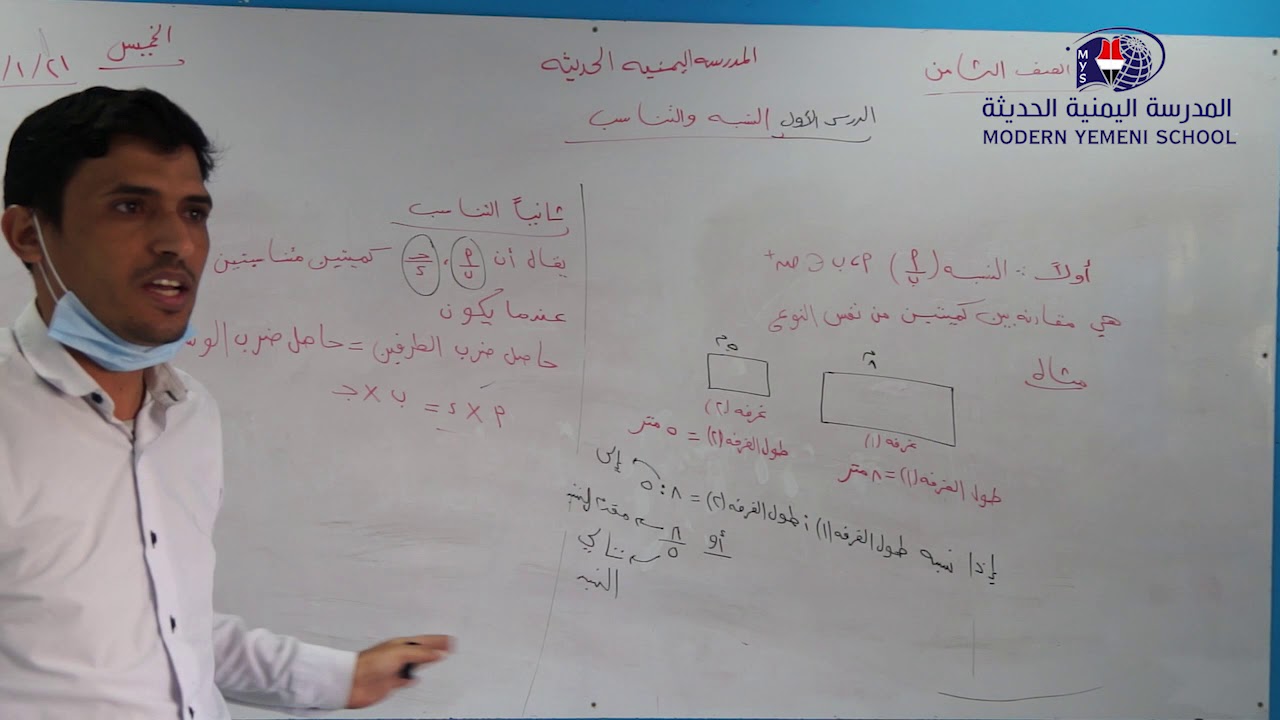 الصف الثامن
المدرسه اليمنيه الحديثه
الخميس
٢١/١/
MYS
المدرسة اليمنية الحديثة
MODERN YEMENI SCHOOL
الدرس الأول النسبه والتناسب
أولاً :: النسبه (أ/ب) أ،ب ∈ صہ+
هي مقارنه بين كميتين من نفس النوع
مثال
٨م
٥م
غرفه (١)
غرفه (٢)
طول الغرفه (١) = ٨ متر
طول الغرفه (٢) = ٥ متر
إذا نسبه طول الغرفه (١) : طول الغرفه (٢) = ٨ : ٥ إلى
أو ٨/٥ مقدم النسبه
تالي
النسبه
ثانياً التناسب
يقال أن أ/ب ، جـ/د كميتين متناسبتين
عندما يكون
حاصل ضرب الطرفين = حاصل ضرب
أ × د = ب × جـ